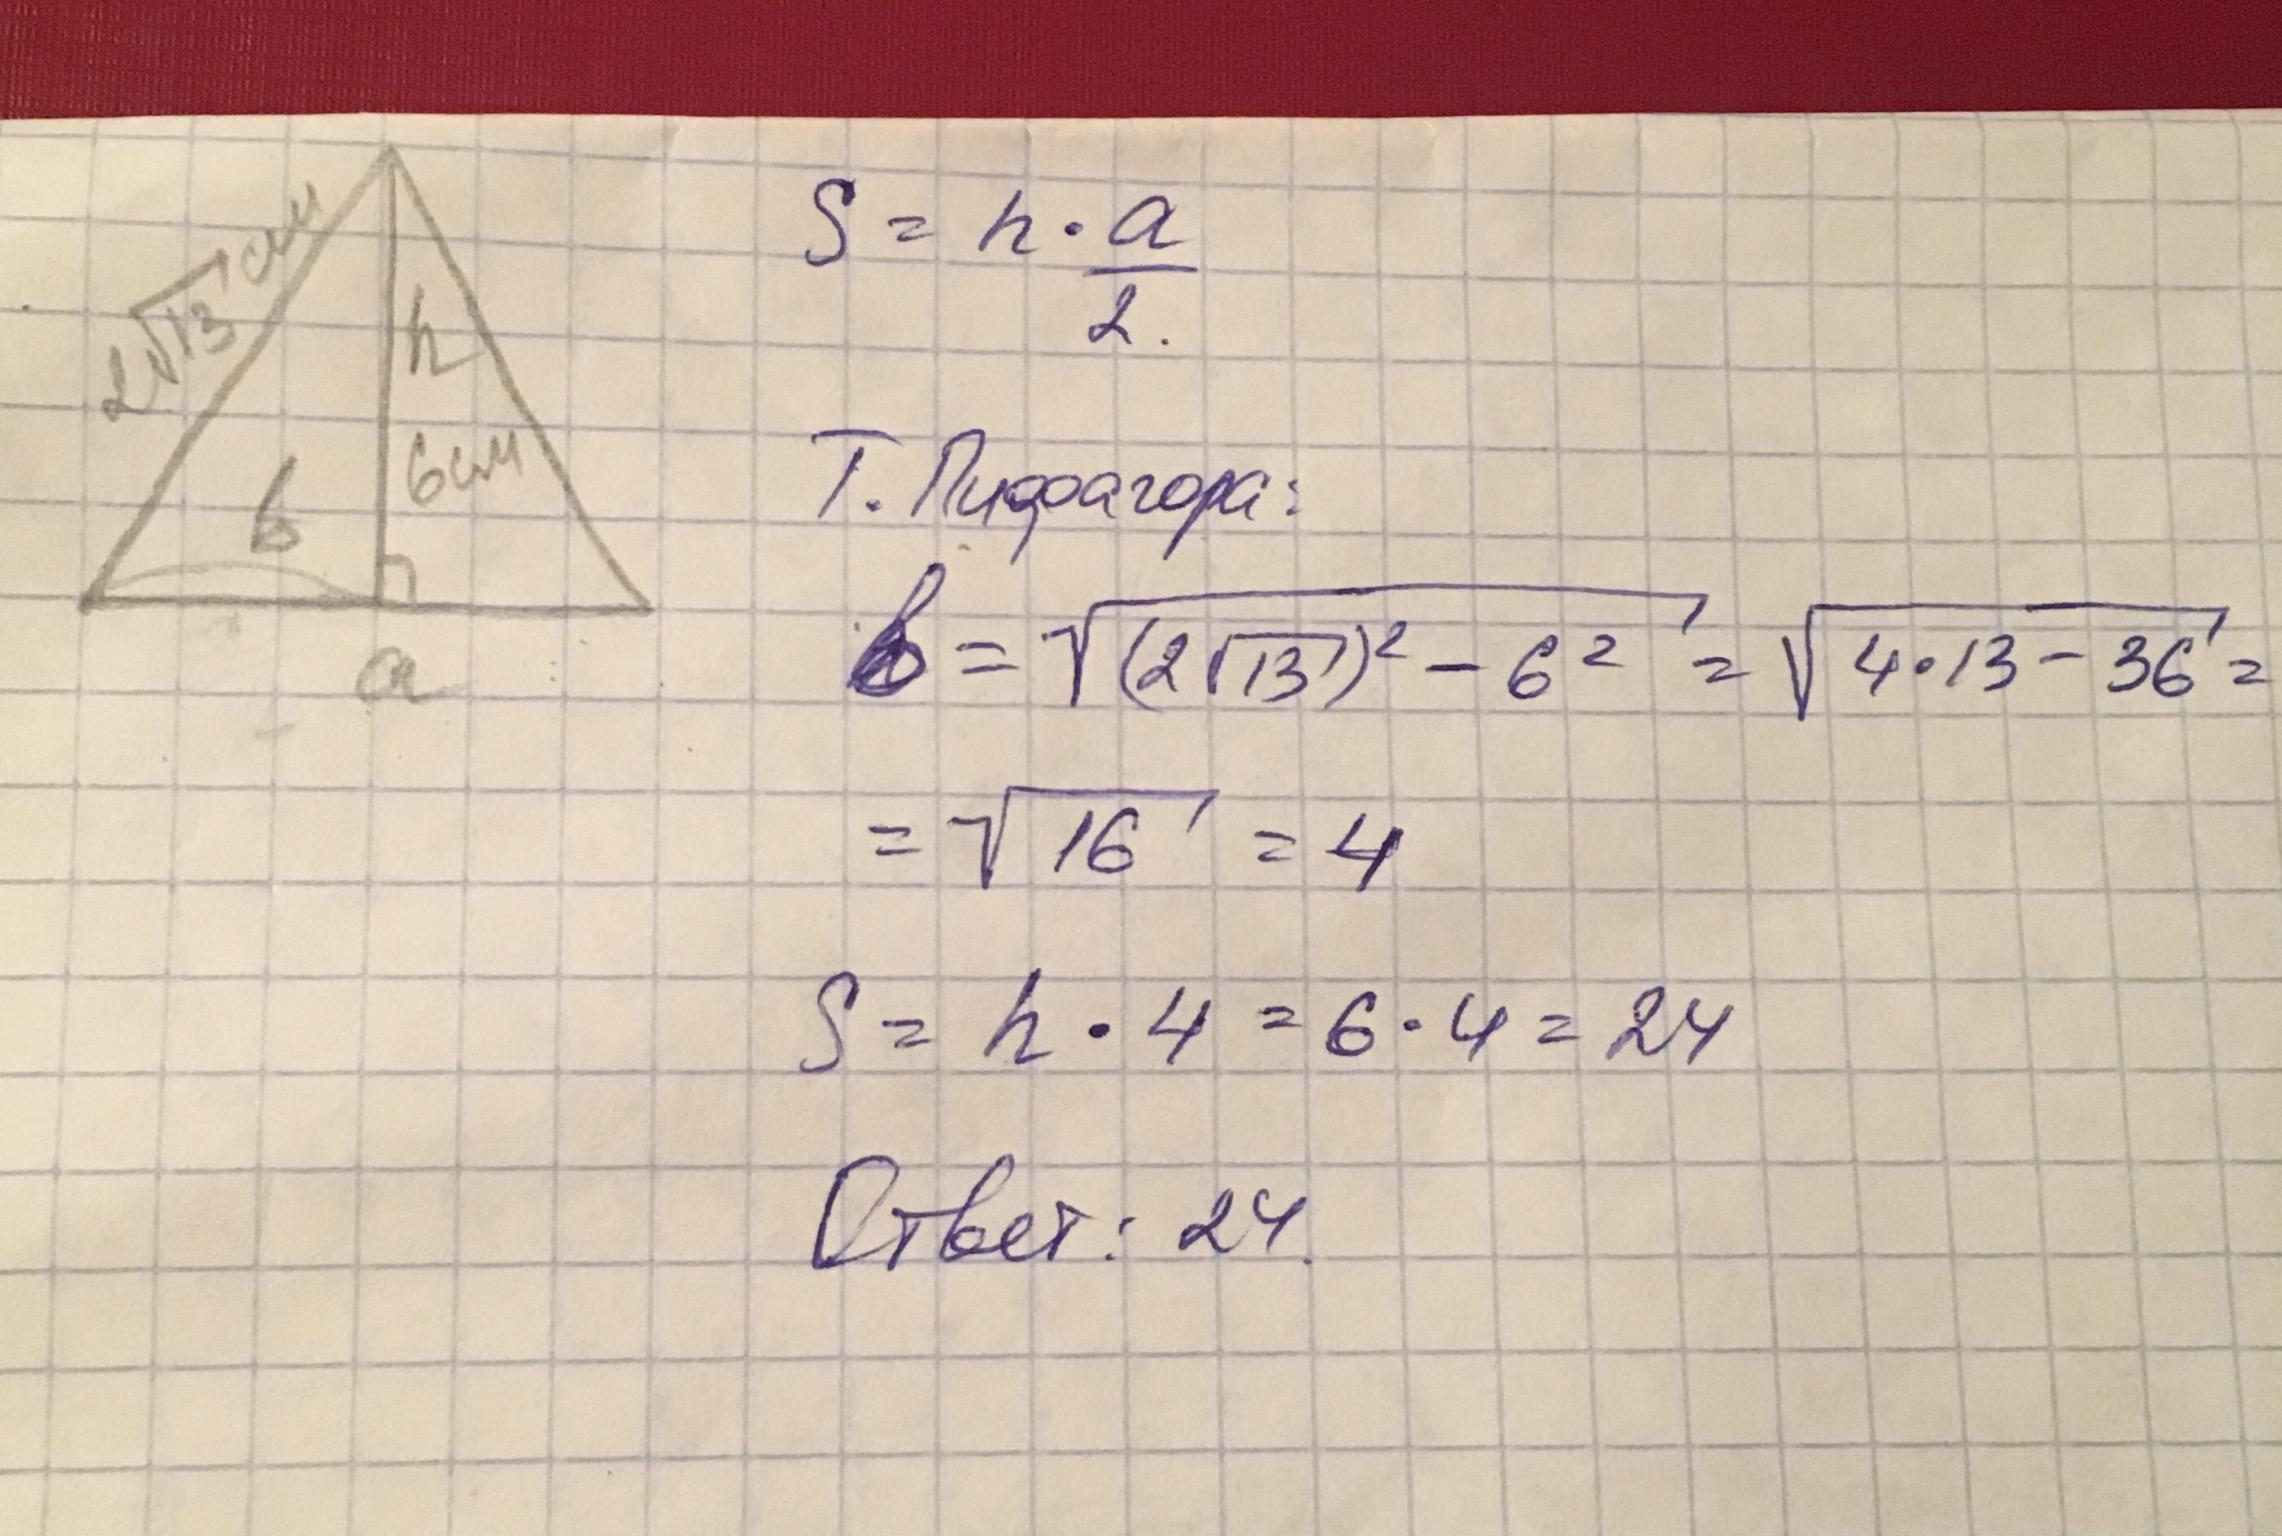 2√13 см
h
6см
b
a
S = h · a/2.
Т. Пифагора:
b = √((2√13)² - 6²) = √(4·13 - 36) =
= √16 = 4
S = h · 4 = 6 · 4 = 24
Ответ: 24.